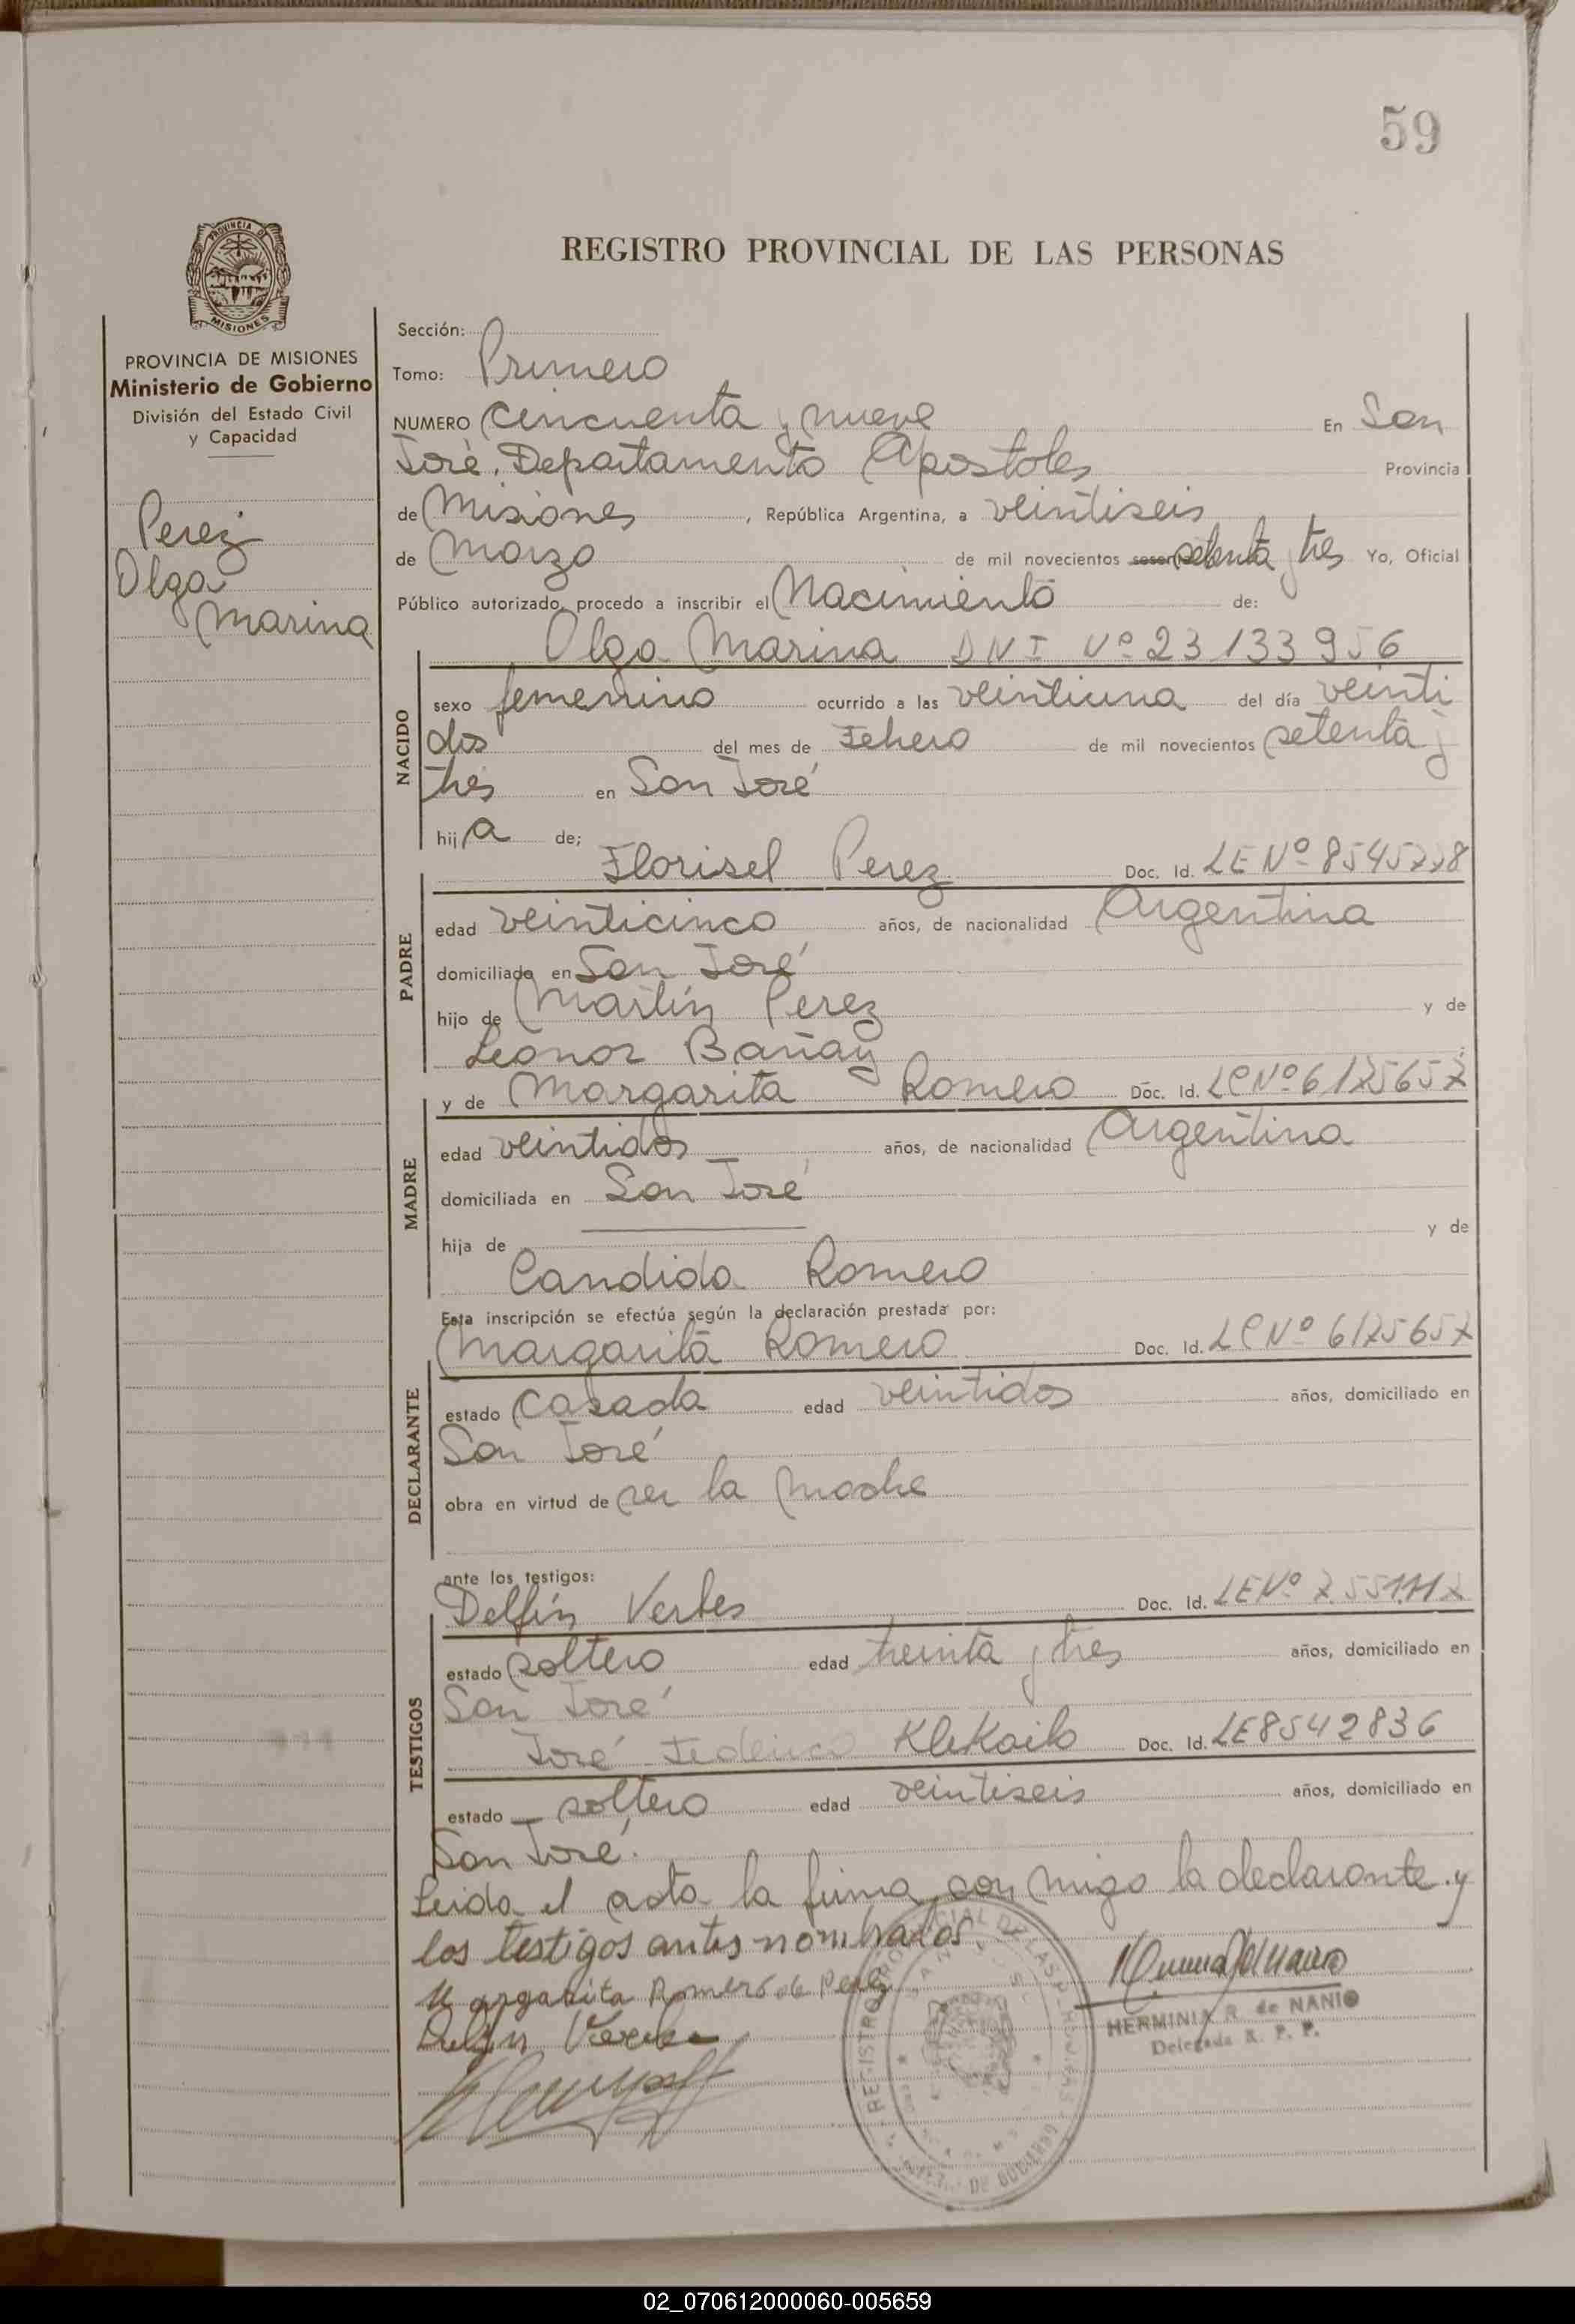 59
REGISTRO PROVINCIAL DE LAS PERSONAS
PROVINCIA DE
MISIONES
PROVINCIA DE MISIONES
Ministerio de Gobierno
División del Estado Civil
y Capacidad
Perez
Olga
Marina
Sección:
Tomo: Primero
NUMERO cincuenta y nueve En San
José, Departamento Apostoles Provincia
de Misiones, República Argentina, a veintiseis
de Marzo de mil novecientos setenta y tres Yo, Oficial
Público autorizado, procedo a inscribir el Nacimiento de:
Olga Marina DNI Nº 23133956
NACIDO
sexo femenino ocurrido a las veintiuna del día veinti
dos del mes de Febrero de mil novecientos setenta y
tres en San José
hija de;
Florisel Perez Doc. Id. LE Nº
PADRE
edad veinticinco años, de nacionalidad Argentina
domiciliado en San José
hijo de Martín Perez y de
Leonor Bañay
y de Margarita Romero Doc. Id. LC Nº 6175657
MADRE
edad veintidos años, de nacionalidad Argentina
domiciliada en San José
hija de y de
Candida Romero
Esta inscripción se efectúa según la declaración prestada por:
Margarita Romero Doc. Id. LC Nº 6175657
DECLARANTE
estado casada edad veintidos años, domiciliado en
San José
obra en virtud de ser la madre
ante los testigos:
Delfín Verbes Doc. Id. LE Nº
TESTIGOS
estado soltero edad treinta y tres años, domiciliado en
San José
José Federico Klekailo Doc. Id. LE 8542836
estado soltero edad veintiseis años, domiciliado en
San José.
Leida el acta la firma con migo la declarante y
los testigos antes nombrados.
Margarita Romero de Perez
Delfin
HERMINIA R. de NANIO
Delegada R. P. P.
02_070612000060-005659